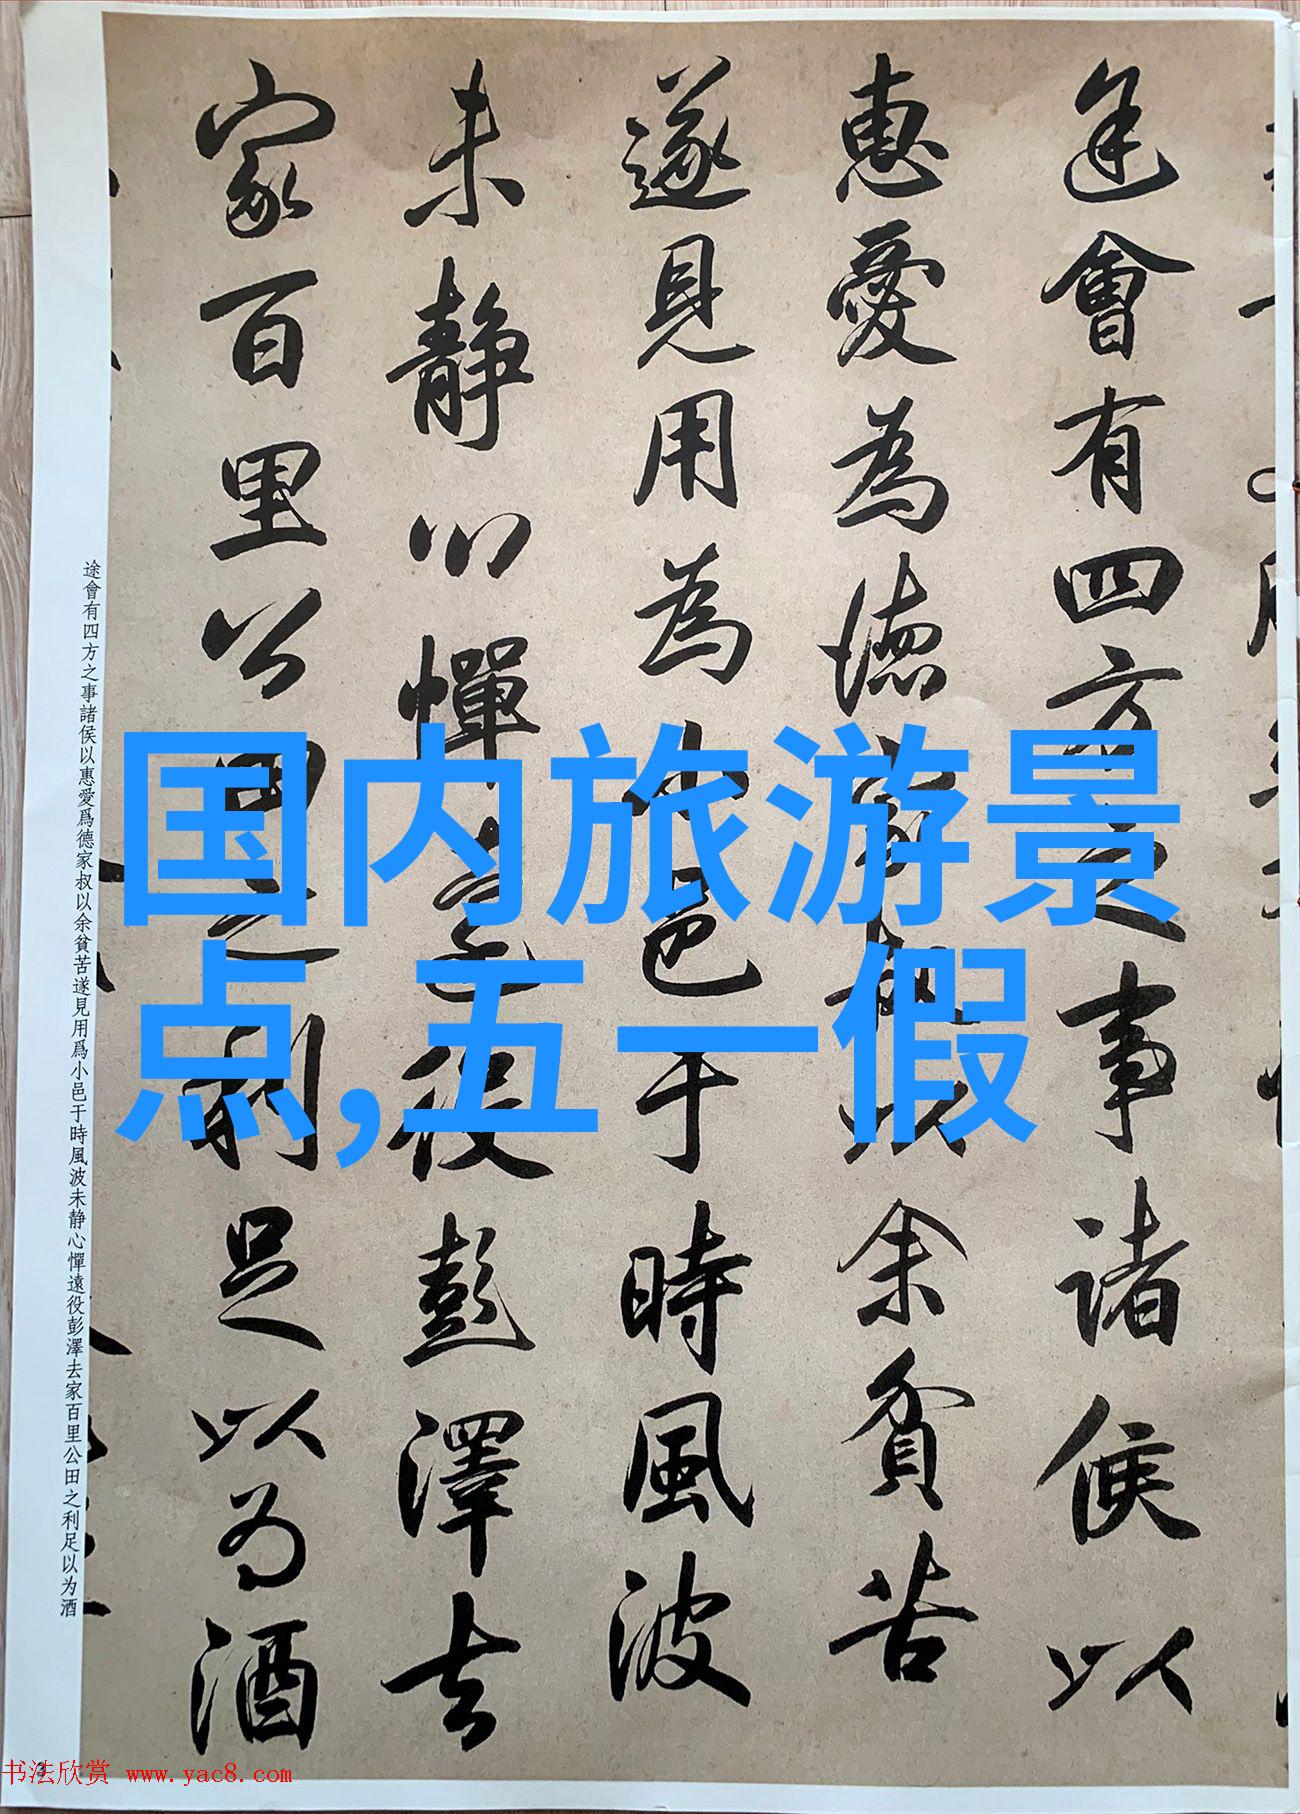 途會有四方之事諸侯以
惠愛為德家叔以余貧苦
遂見用為小邑于時風波
未靜心憚遠役彭澤去
家百里公田之利足以為酒
途會有四方之事諸侯以惠愛爲德家叔以余貧苦遂見用爲小邑于時風波未静心憚遠役彭澤去家百里公田之利足以为酒
国内旅游景
点,五一假
书法欣赏 www.yac8.com